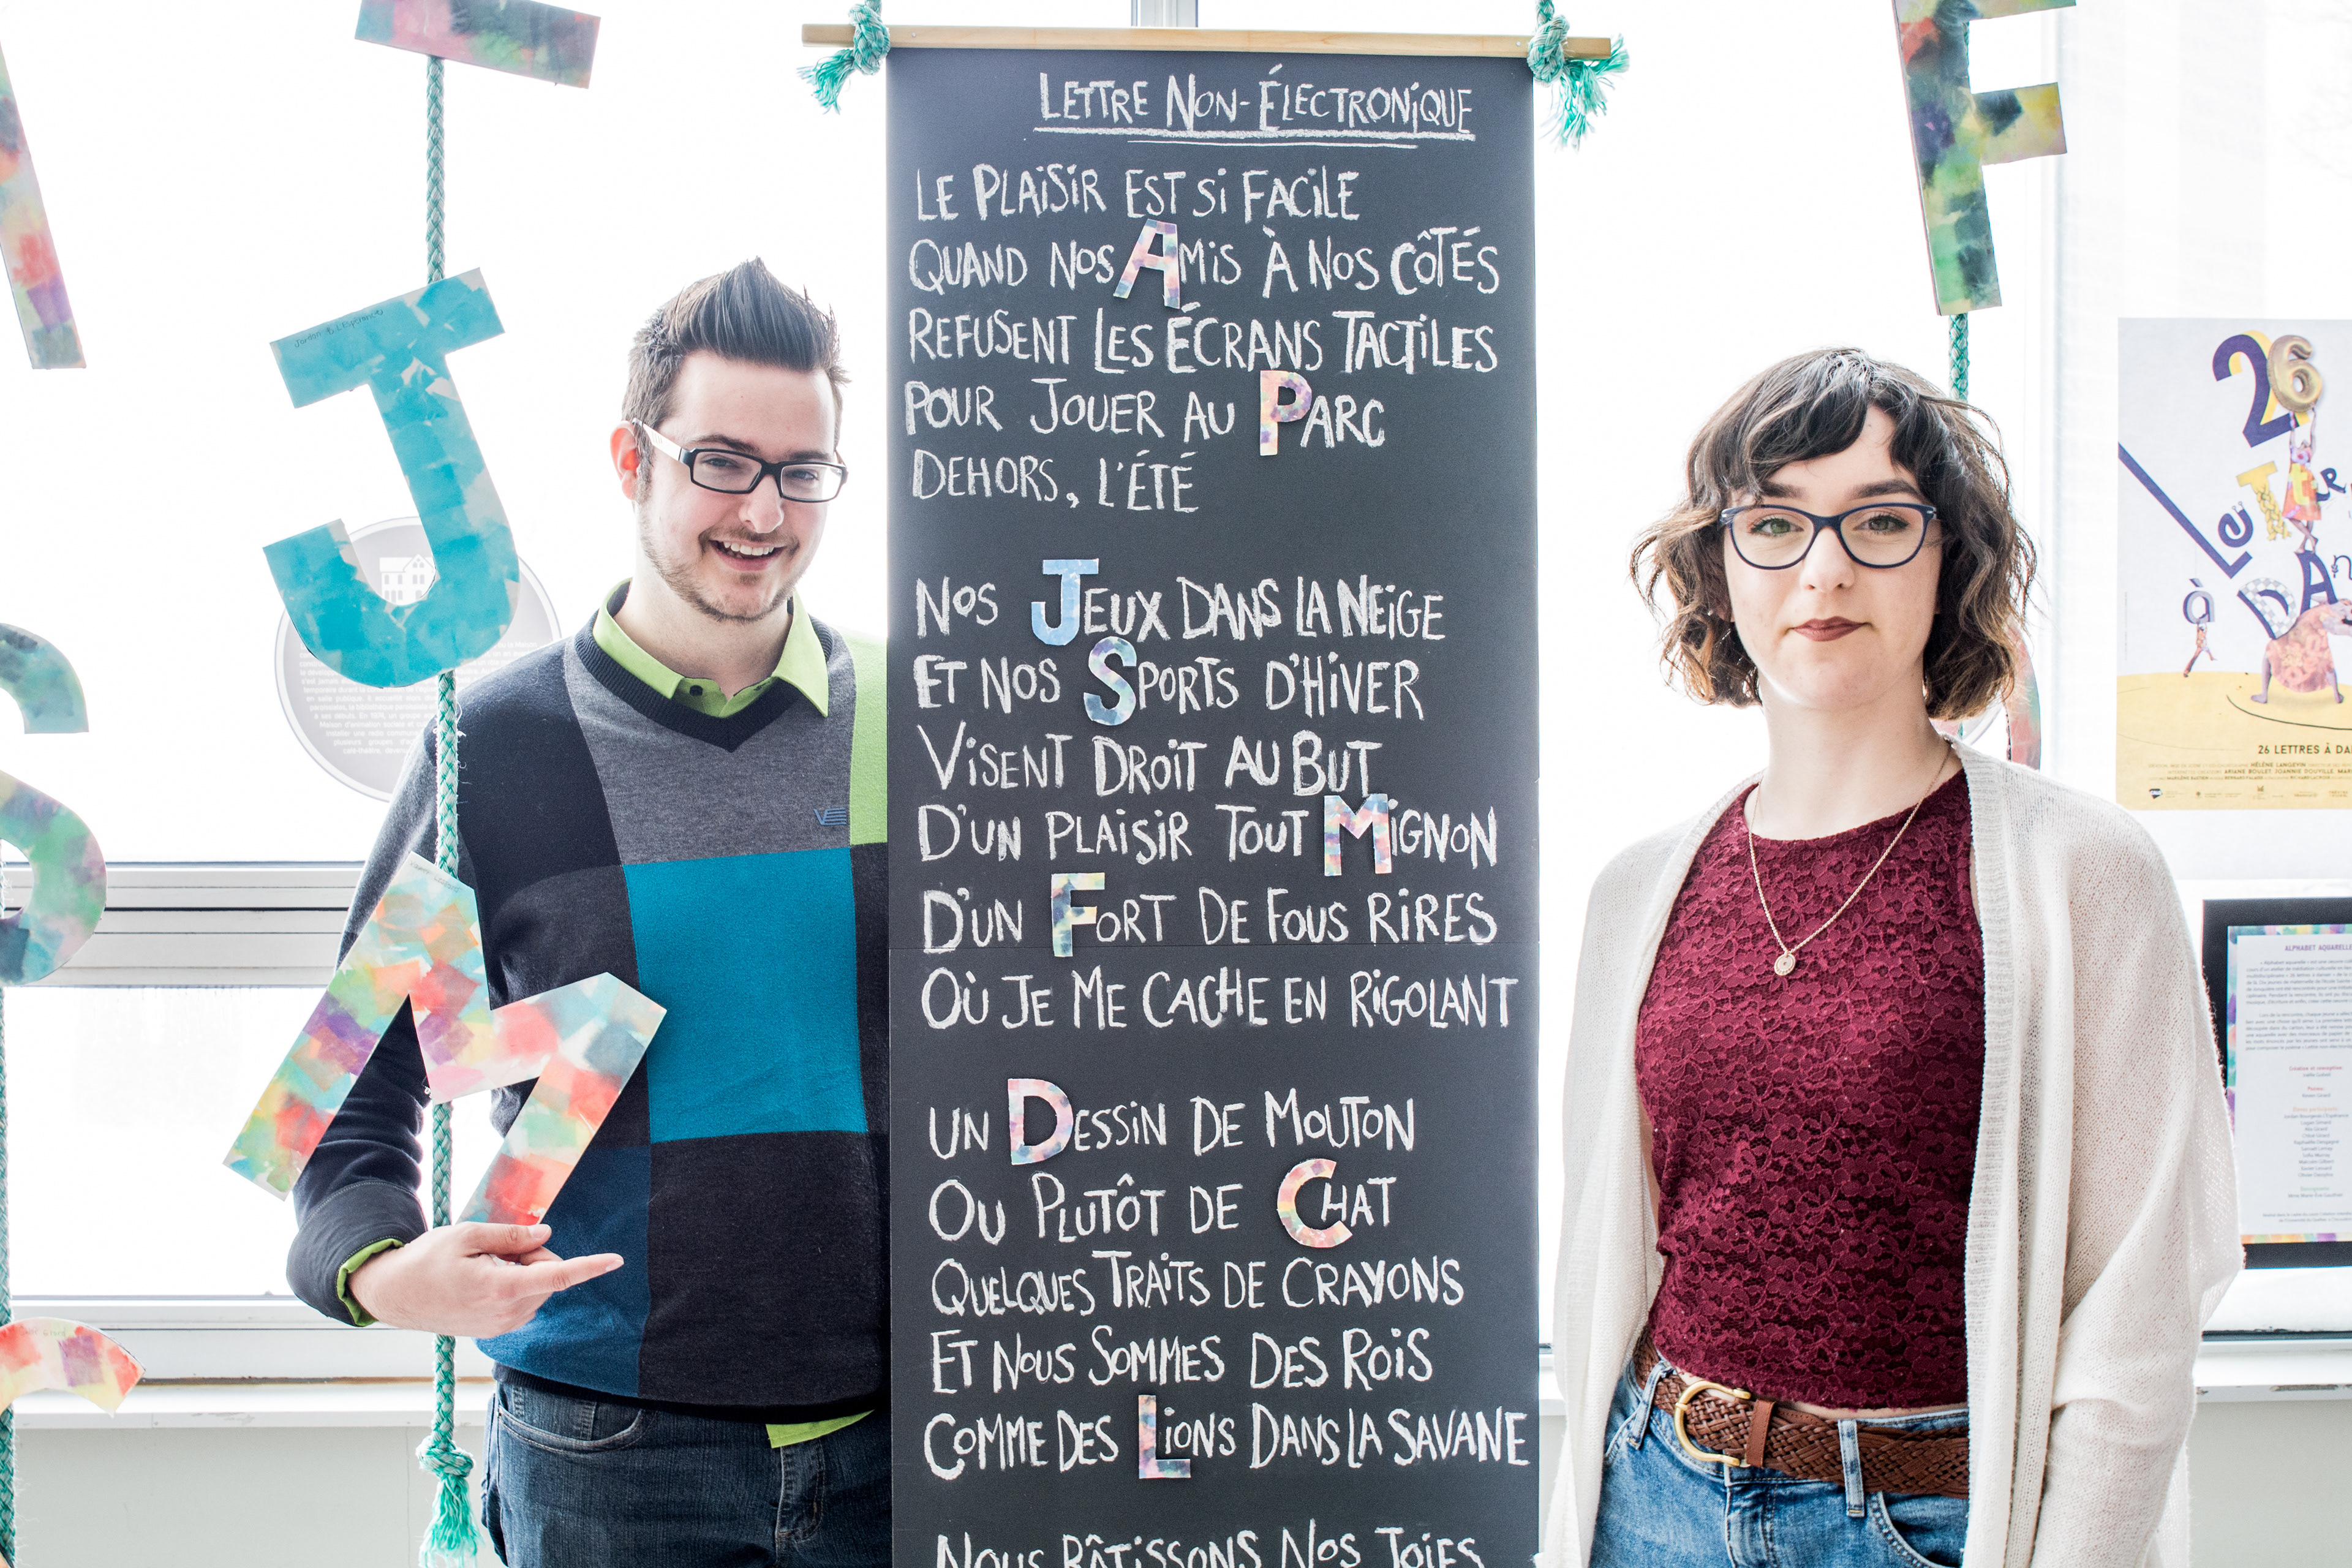 LETTRE NON-ÉLECTRONIQUE
LE PLAISIR EST SI FACILE
QUAND NOS AMIS À NOS CÔTÉS
REFUSENT LES ÉCRANS TACTILES
POUR JOUER AU PARC
DEHORS, L'ÉTÉ
NOS JEUX DANS LA NEIGE
ET NOS SPORTS D'HIVER
VISENT DROIT AU BUT
D'UN PLAISIR TOUT MIGNON
D'UN FORT DE FOUS RIRES
OÙ JE ME CACHE EN RIGOLANT
UN DESSIN DE MOUTON
OU PLUTÔT DE CHAT
QUELQUES TRAITS DE CRAYONS
ET NOUS SOMMES DES ROIS
COMME DES LIONS DANS LA SAVANE
NOUS BÂTISSONS NOS JOIES
J
M
S
F
26
LETTR
à
DAn
26 LETTRES À DA
HÉLÈNE LANGEVIN
ALPHABET AQUARELLE